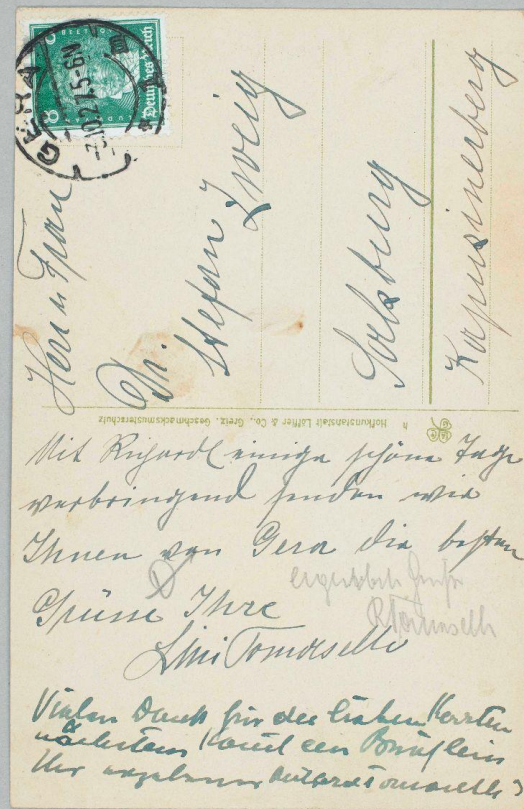 Deutsches Reich
8
GERA
Herrn u Frau
Dr. Stefan Zweig
Salzburg
Kapuzinerberg
Hofkunstanstalt Löffler & Co., Greiz. Geschmacksmusterschutz
h
Mit Richardl einige schöne Tage
verbringend senden wir
Ihnen von Gera die besten
Grüsse Ihre
Lini Tomaselli
Vielen Dank für die lieben Karten
nächstens kommt ein Brieflein
Ihr ergebener